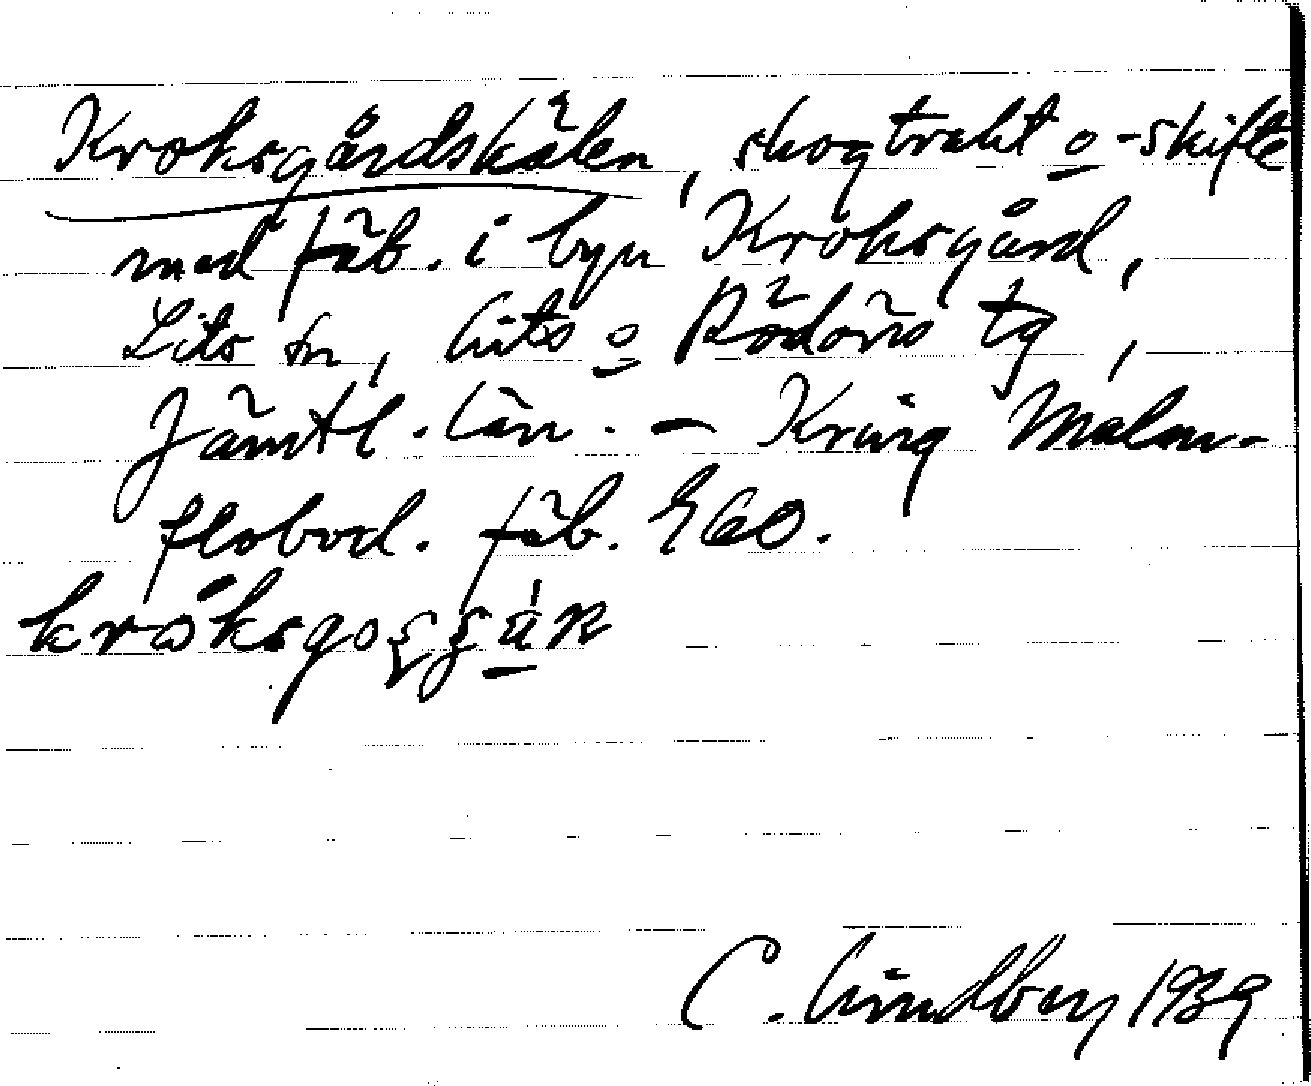 Kroksgårdskälen, skogtrakt o -skifte
med fäb. i byn Kroksgård,
Lits sn, Lits o Rödöns tg,
Jämtl. län. - Kring Malm-
flobod. fäb. EGO.
C. Lindberg 1939